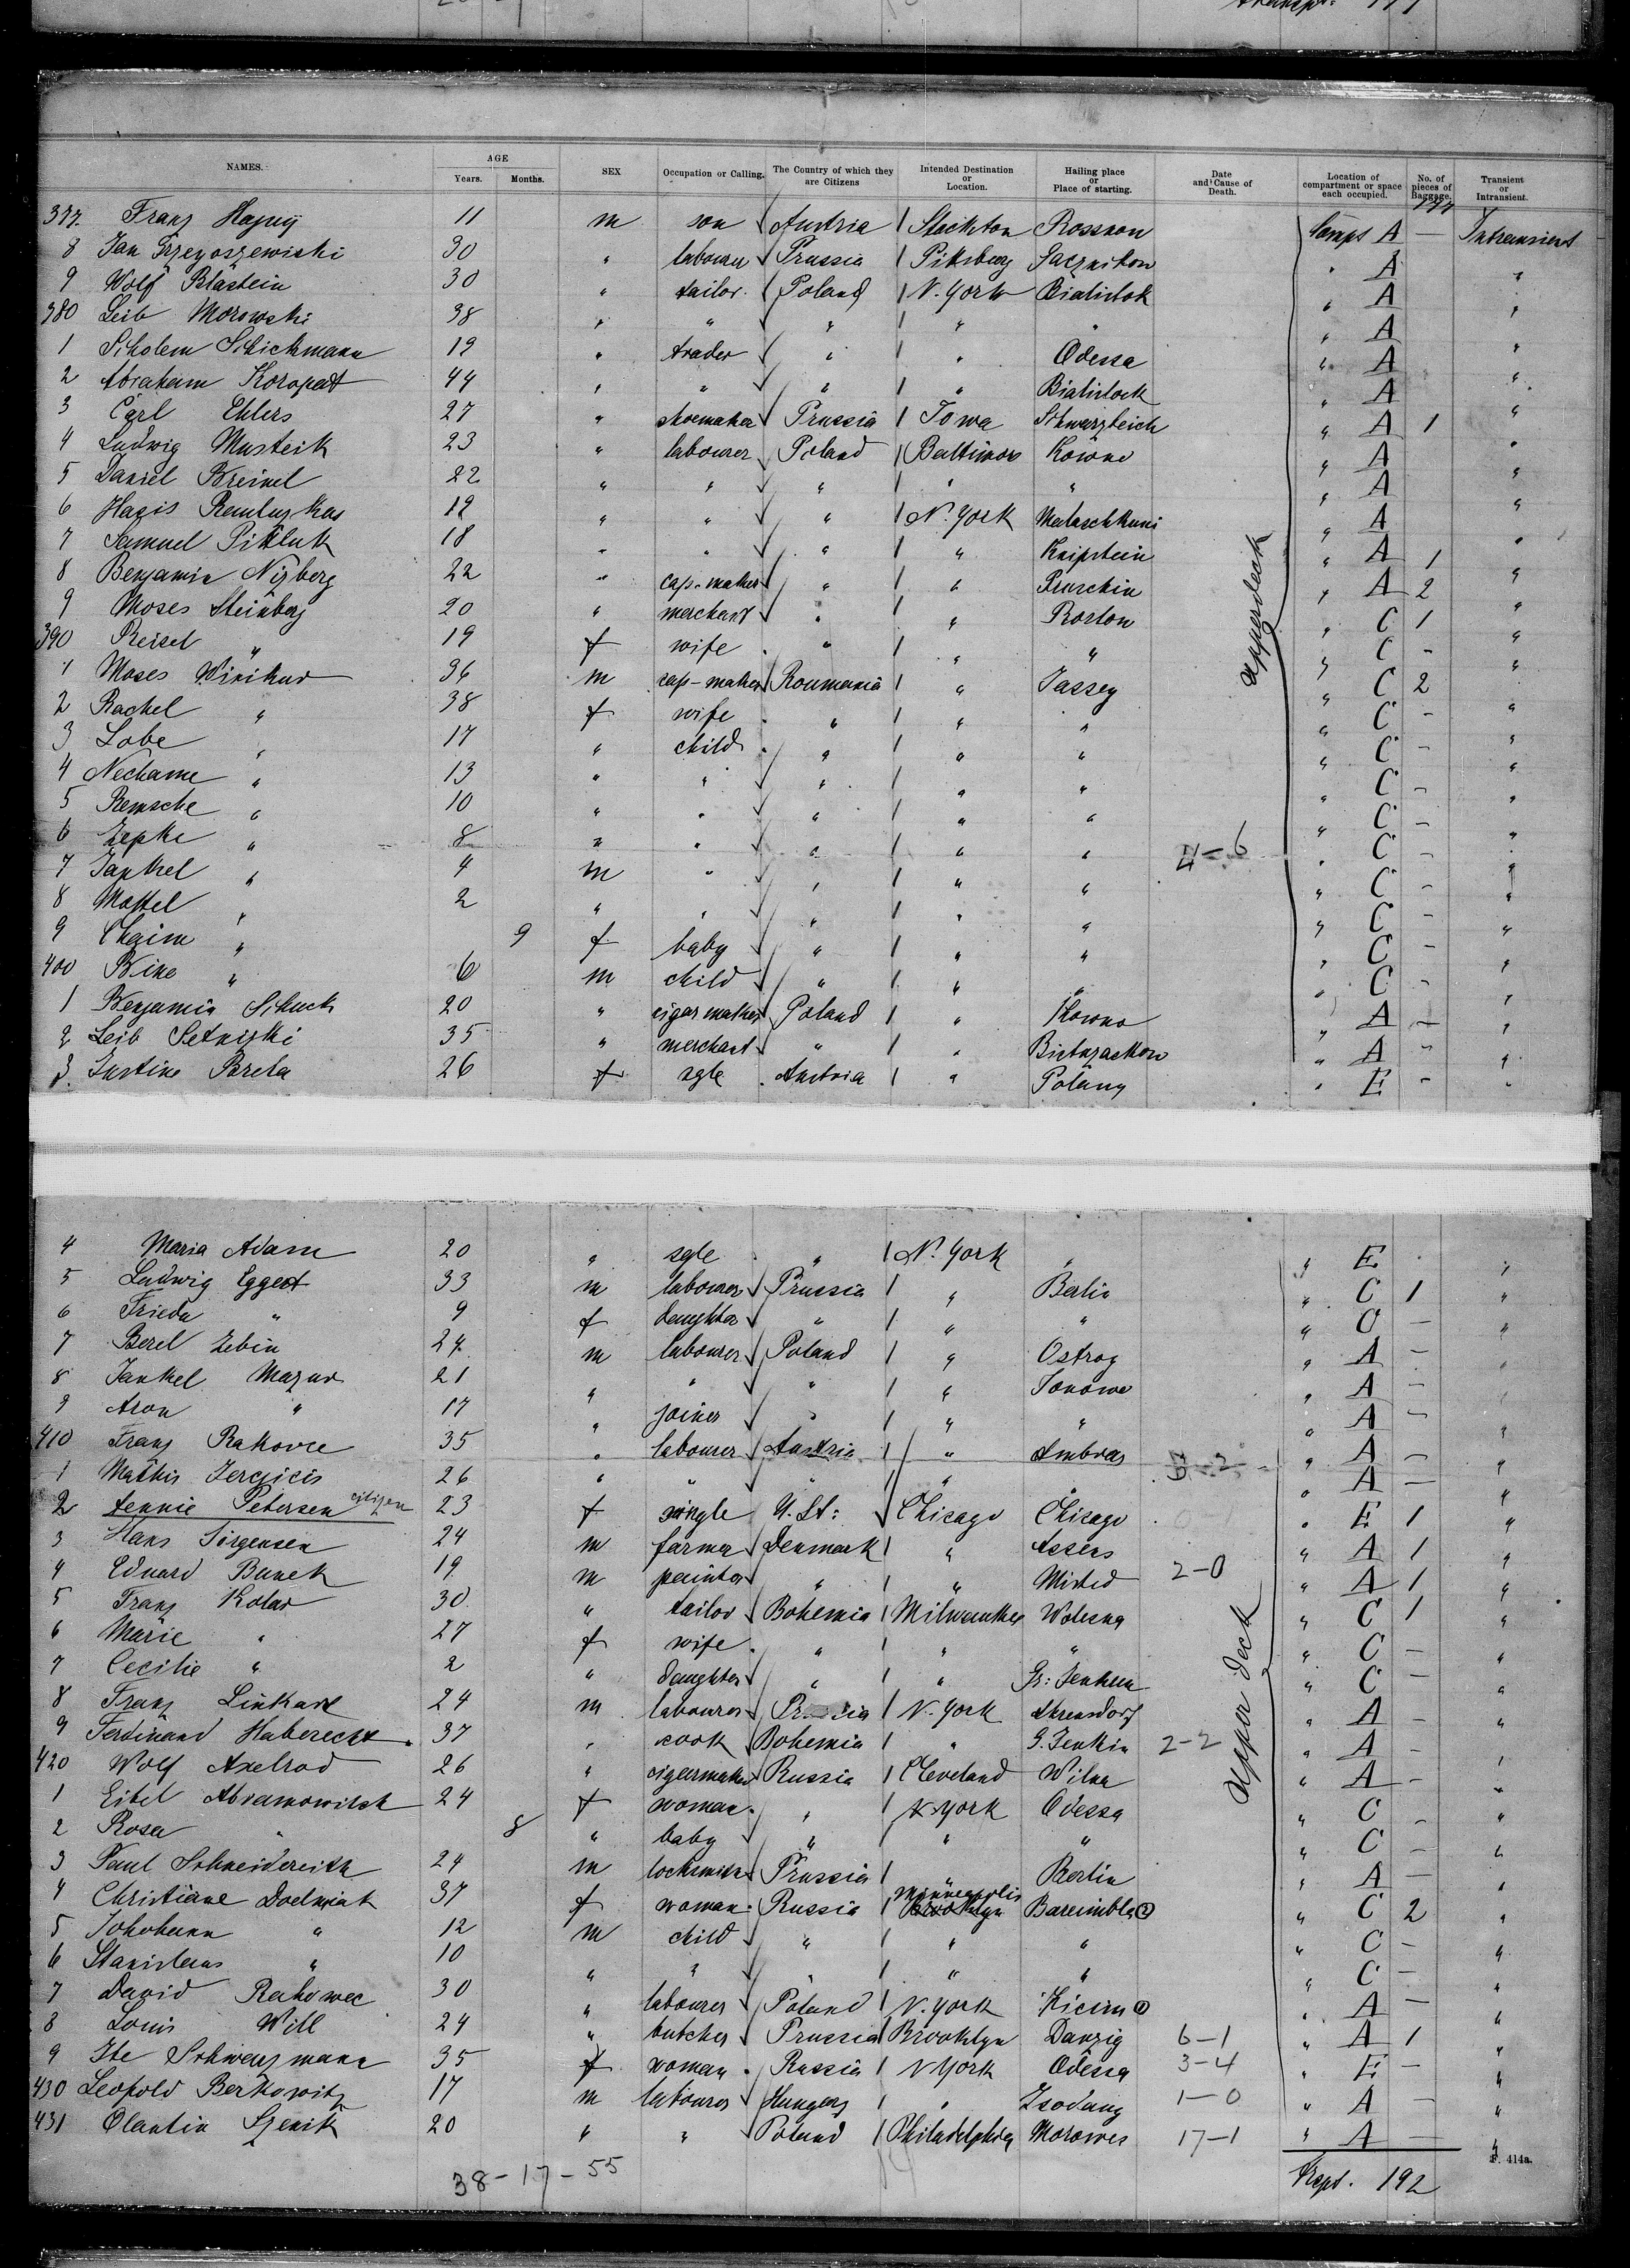 Transp. 177
NAMES. AGE Years. Months. SEX Occupation or Calling. The Country of which they are Citizens Intended Destination or Location. Hailing place or Place of starting. Date and Cause of Death. Location of compartment or space each occupied. No. of pieces of Baggage. Transient or Intransient.
177
377. Franz Hajny 11 m son Austria Stockton Rossnon Compt A — Intransient
8 Jan Grzegoszewiski 30 " labourer Prussia Pittsburg " A "
9 Wolf Blastein 30 " tailor Poland N. York Bialistok " A "
380 Leib Morowski 38 " " " " " " A "
1 Scholem Schickmann 19 " trader " " Odessa " A "
2 Abraham Koropatt 44 " " " " Bialistock " A "
3 Carl Ehlers 27 " shoemaker Prussia Iowa Schwarzbeich " A 1 "
4 Ludwig Musteik 23 " labourer Poland Baltimore Kowno " A "
5 Daniel Breinel 22 " " " " " " A "
6 Hagis 19 " " " N. York " A "
7 Samuel Pikluk 18 " " " " Knipstein " A 1 "
8 Benjamin Nisberg 22 " cap-maker " " Pruschin " A 2 "
9 Moses Steinberg 20 " merchant " " Roston " C 1 "
390 Reisel " 19 f wife " " " " C - "
1 Moses Winikur 36 m cap-maker Roumania " Jassey " C 2 "
2 Rachel " 38 f wife " " " " C - "
3 Lobe " 17 " child " " " " C - "
4 Nechame " 13 " " " " " " C - "
5 Bemsche " 10 " " " " " " C - "
6 Zepke " 8 " " " " " 4-6 " C - "
7 Jankel " 4 m " " " " " C - "
8 Mottel " 2 " " " " " " C - "
9 Chaim " 9 f baby " " " " C - "
400 Bine " 6 m child " " " " C - "
1 Benjamin Schuck 20 " cigarmaker Poland " Kowno " A - "
2 Leib Setnizki 35 " merchant " " " A - "
3. Justine Pareta 26 f sgle Austria " Polany " E - "
upperdeck
4 Maria Adam 20 " sgle " N. York " " E "
5 Ludwig Eggert 33 m labourer Prussia " Berlin " C 1 "
6 Frieda " 9 f daughter " " " " C — "
7 Berel Zebin 27 m labourer Poland " Ostrog " A — "
8 Jankel Mazur 21 " " " " Janowe " A — "
9 Aron " 17 " joiner " " " " A — "
410 Franz Rakovce 35 " labourer Austria " Ambras " A — "
1 Mathis 26 " " " " " 3-2 " A — "
2 Aennie Petersen citizen 23 f single U. St: Chicago Chicago 0-1 " E 1 "
3 Hans Jörgensen 24 m farmer Denmark " Assens " A 1 "
4 Eduard Bunek 19 m painter " " Misted 2-0 " A 1 "
5 Franz Kolar 30 " tailor Bohemia Milwaukee Wolesna " C 1 "
6 Marie " 27 f wife " " " " C — "
7 Cecilie " 2 " daughter " " Gr: Jenken " C — "
8 Franz Linkard 24 m labourer Prussia N. York Ahrensdorf " A — "
9 Ferdinand Haberecht 37 " cook Bohemia " G. Jenkin 2-2 " A — "
420 Wolf Axelrod 26 " cigarmaker Russia Cleveland Wilna " A — "
1 Eitel Abramowitsch 24 f woman " N. York Odessa " C - "
2 Rosa " 8 " baby " " " " C - "
3 Paul Schneidereith 24 m locksmith Prussia " Berlin " A — "
4 Christiane Doelwiak 37 f woman Russia Minneapolis Brooklyn Bareimbla " C 2 "
5 Johohann " 12 m child " " " " C — "
6 Stanislaus " 10 " " " " " " C — "
7 David Rakowec 30 " labourer Poland N. York Kicim " A — "
8 Louis Will 24 " butcher Prussia Brooklyn Danzig 6-1 " A 1 "
9 Ite Schwarzmann 35 f woman Russia N York Odessa 3-4 " E — "
430 Leopold Berkowitz 17 m labourer Hungary " Zsodany 1-0 " A — "
431 Olantin Szenik 20 " " Poland Philadelphia Morowes 17-1 " A — "
Upper deck
F. 414a.
38-17-55
Trspt. 192